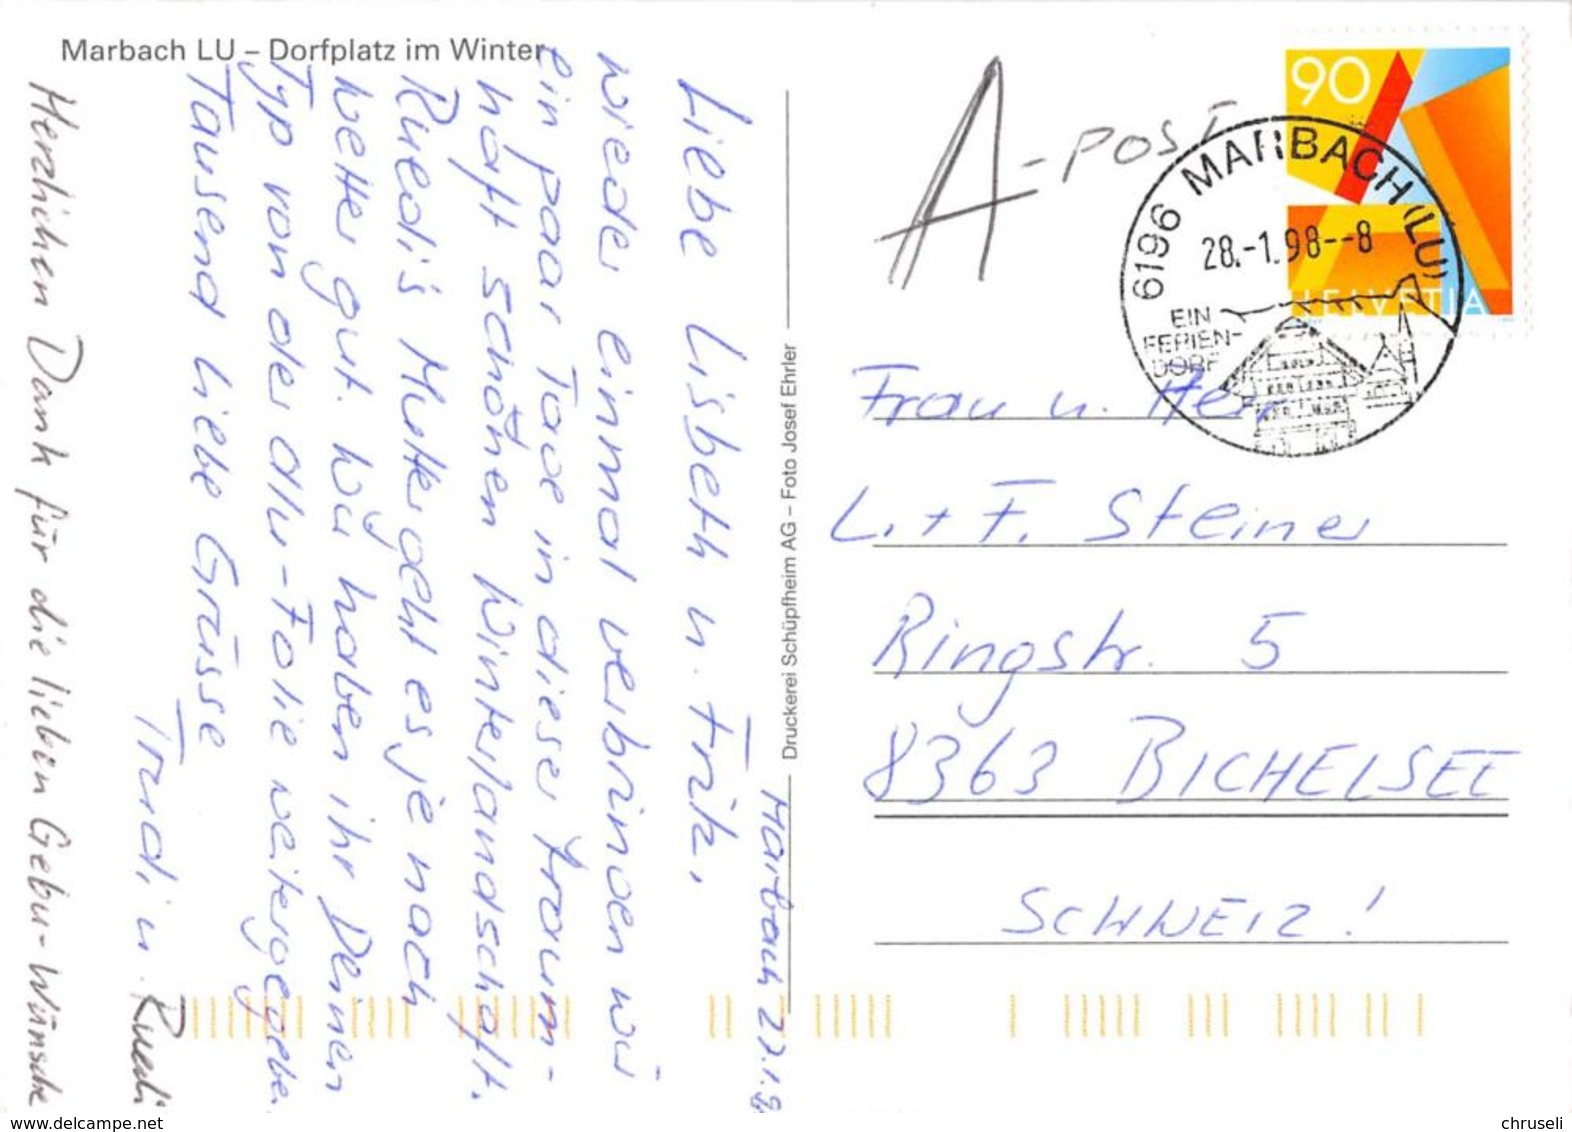 Marbach LU – Dorfplatz im Winter
Marbach 27.1.98
Liebe Lisbeth u. Frik,
Wieder einmal verbringen wir
ein paar Tage in dieser traum-
haft schönen Winterlandschaft.
Ruedi's Mutter geht es je nach
Wetter gut. Wir haben ihr Deinen
Typ von der Alu-Folie weitergegeben.
Tausend liebe Grüsse
Trudi u. Ruedi
Herzlichen Dank für die lieben Gebu-Wünsche
Druckerei Schüpfheim AG – Foto Josef Ehrler
A-POST
90
HELVETIA
6196 MARBACH (LU)
28.-1.98--8
EIN
FERIEN-
DORF
Frau u. Herr
L. + F. Steiner
Ringstr. 5
8363 BICHELSEE
SCHWEIZ!
www.delcampe.net
chruseli